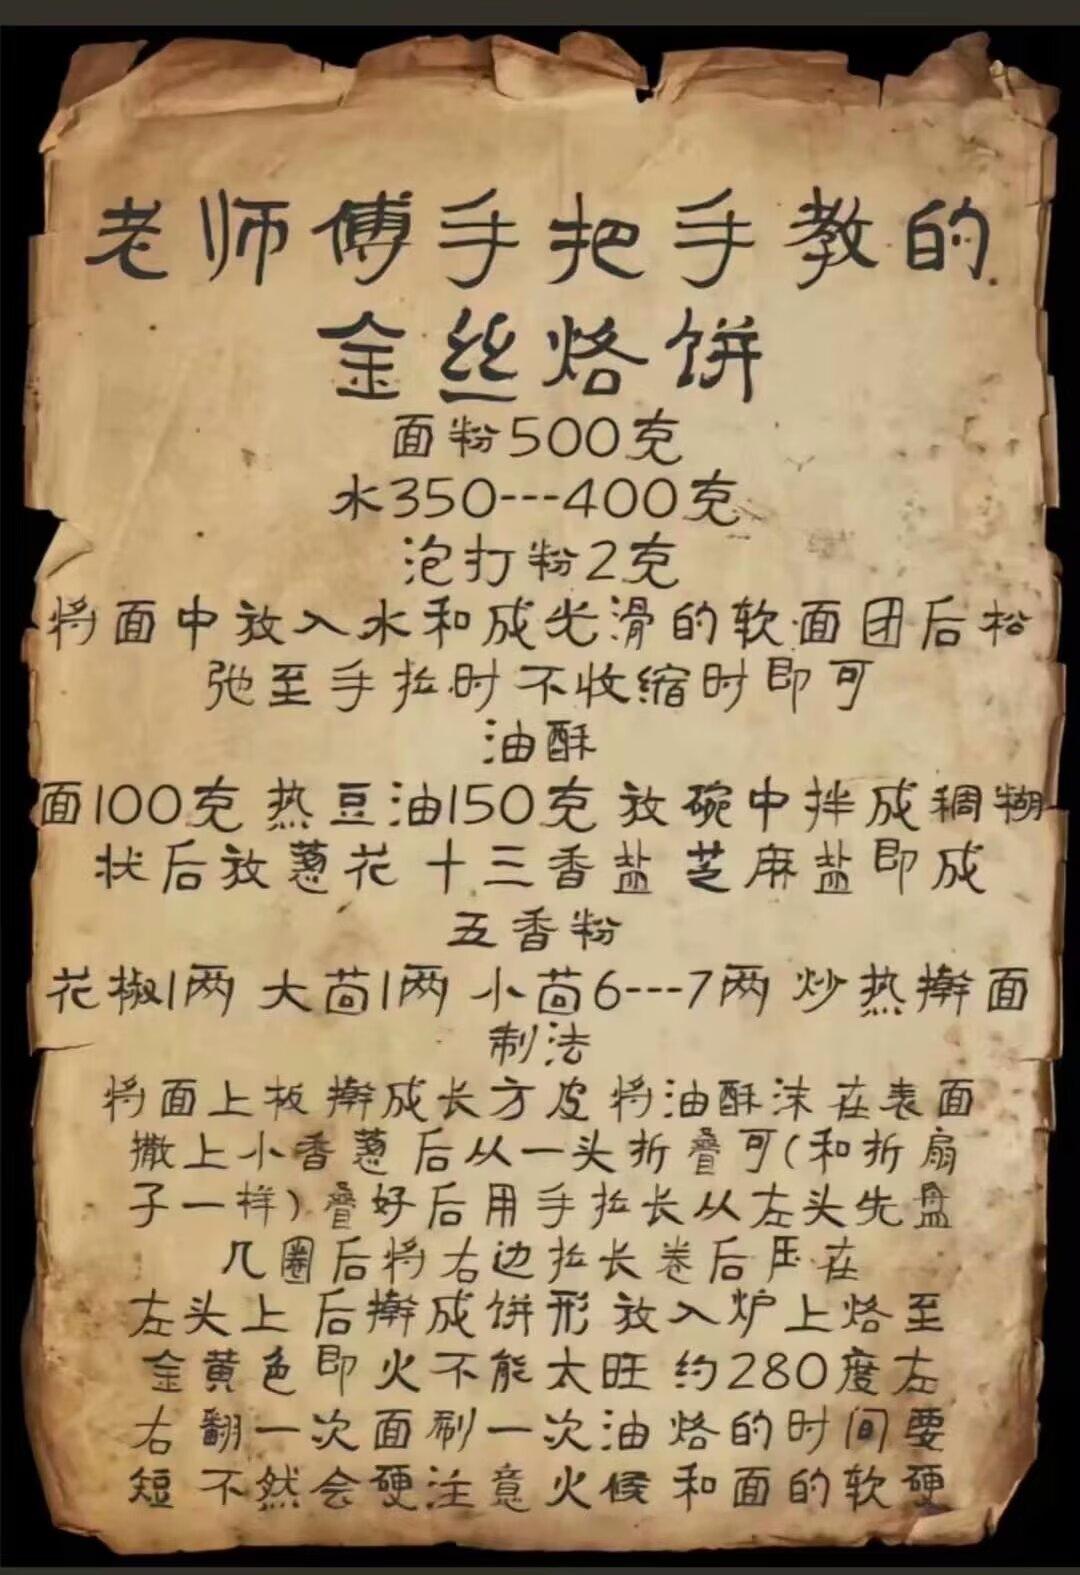 老师傅手把手教的
金丝烙饼
面粉500克
水350---400克
泡打粉2克
将面中放入水和成光滑的软面团后松
弛至手拉时不收缩时即可
油酥
面100克 热豆油150克 放碗中拌成稠糊
状后放葱花 十三香盐 芝麻盐即成
五香粉
花椒1两 大茴1两 小茴6---7两 炒热擀面
制法
将面上板擀成长方皮将油酥沫在表面
撒上小香葱后从一头折叠可(和折扇
子一样)叠好后用手拉长从左头先盘
几圈后将右边拉长卷后压在
左头上后擀成饼形放入炉上烙至
金黄色即火不能太旺约280度左
右翻一次面刷一次油烙的时间要
短不然会硬注意火候和面的软硬